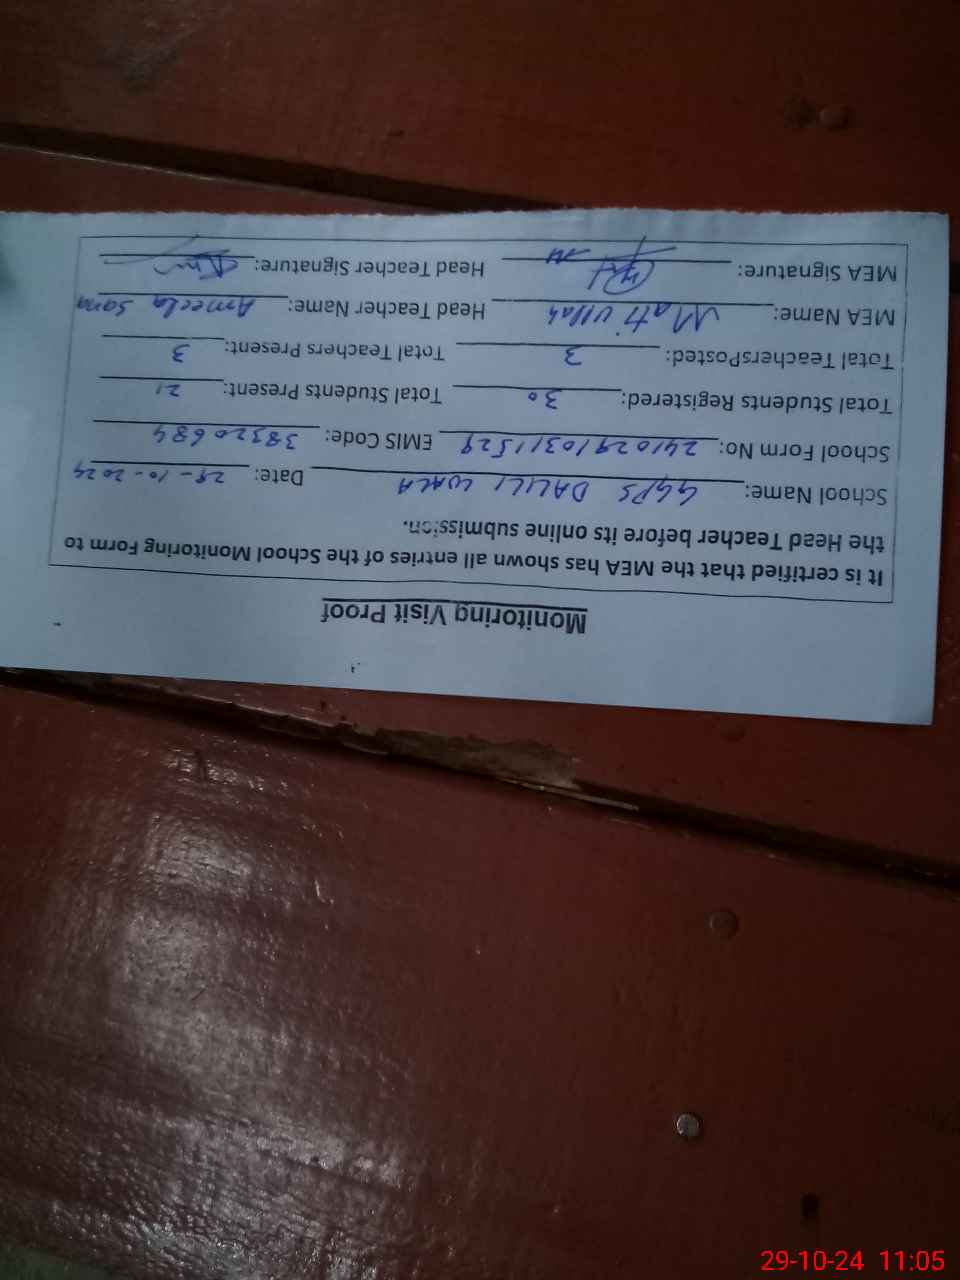 Monitoring Visit Proof
It is certified that the MEA has shown all entries of the School Monitoring Form to
the Head Teacher before its online submission.
School Name: GGPS DALILI WALA Date: 29-10-2024
School Form No: 24102910311529 EMIS Code: 38320684
Total Students Registered: 30 Total Students Present: 21
Total TeachersPosted: 3 Total Teachers Present: 3
MEA Name: Mati Ullah Head Teacher Name: Ameela Sana
MEA Signature: Head Teacher Signature:
29-10-24 11:05